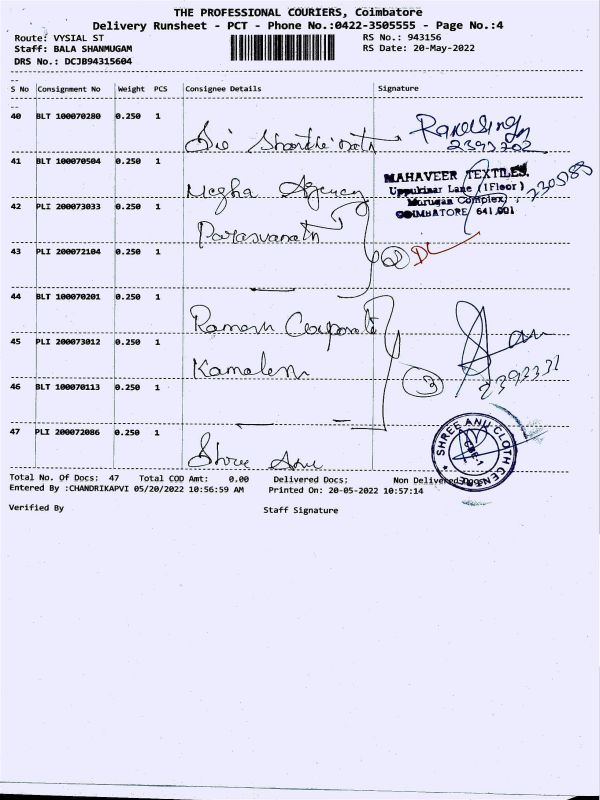 THE PROFESSIONAL COURIERS, Coimbatore
Delivery Runsheet - PCT - Phone No.:0422-3505555 - Page No.:4
Route: VYSIAL ST
RS No.: 943156
Staff: BALA SHANMUGAM
RS Date: 20-May-2022
DRS No.: DCJB94315604
S No Consignment No Weight PCS Consignee Details Signature
40 BLT 100070280 0.250 1
2393202
41 BLT 100070504 0.250 1
Megha Agency
MAHAVEER TEXTILES,
Uppukinar Lane (I Floor)
Murugan Complex,
COIMBATORE 641 001
42 PLI 200073033 0.250 1
Parasvanath
43 PLI 200072104 0.250 1
2
44 BLT 100070201 0.250 1
Ramesh Corporate
45 PLI 200073012 0.250 1
Kamalesh
2392331
46 BLT 100070113 0.250 1
3
47 PLI 200072086 0.250 1
Shree Anu
SHREE ANU CLOTH CENTRE
CBE-1
Total No. Of Docs: 47 Total COD Amt: 0.00 Delivered Docs: Non Delivered Docs:
Entered By :CHANDRIKAPVI 05/20/2022 10:56:59 AM Printed On: 20-05-2022 10:57:14
Verified By Staff Signature